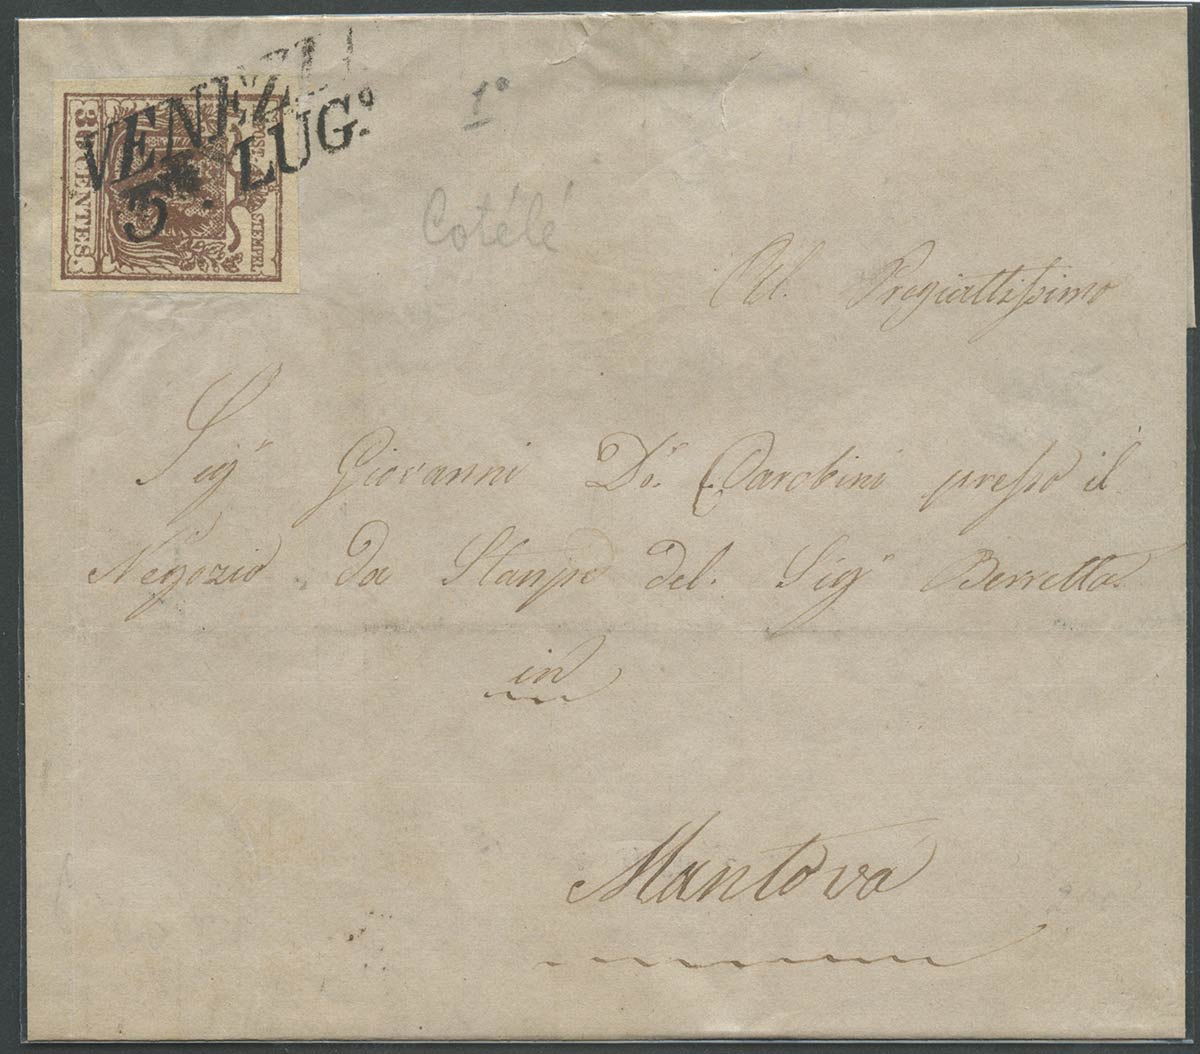 VENEZI
3. LUGº.
30 CENTES.
POST-
STEMPEL
1º
Cotélé
Al. Pregiattissimo
Sigr Giovanni Dn. presso il
Negozio da Stampe del. Sigr Berretta
in
Mantova